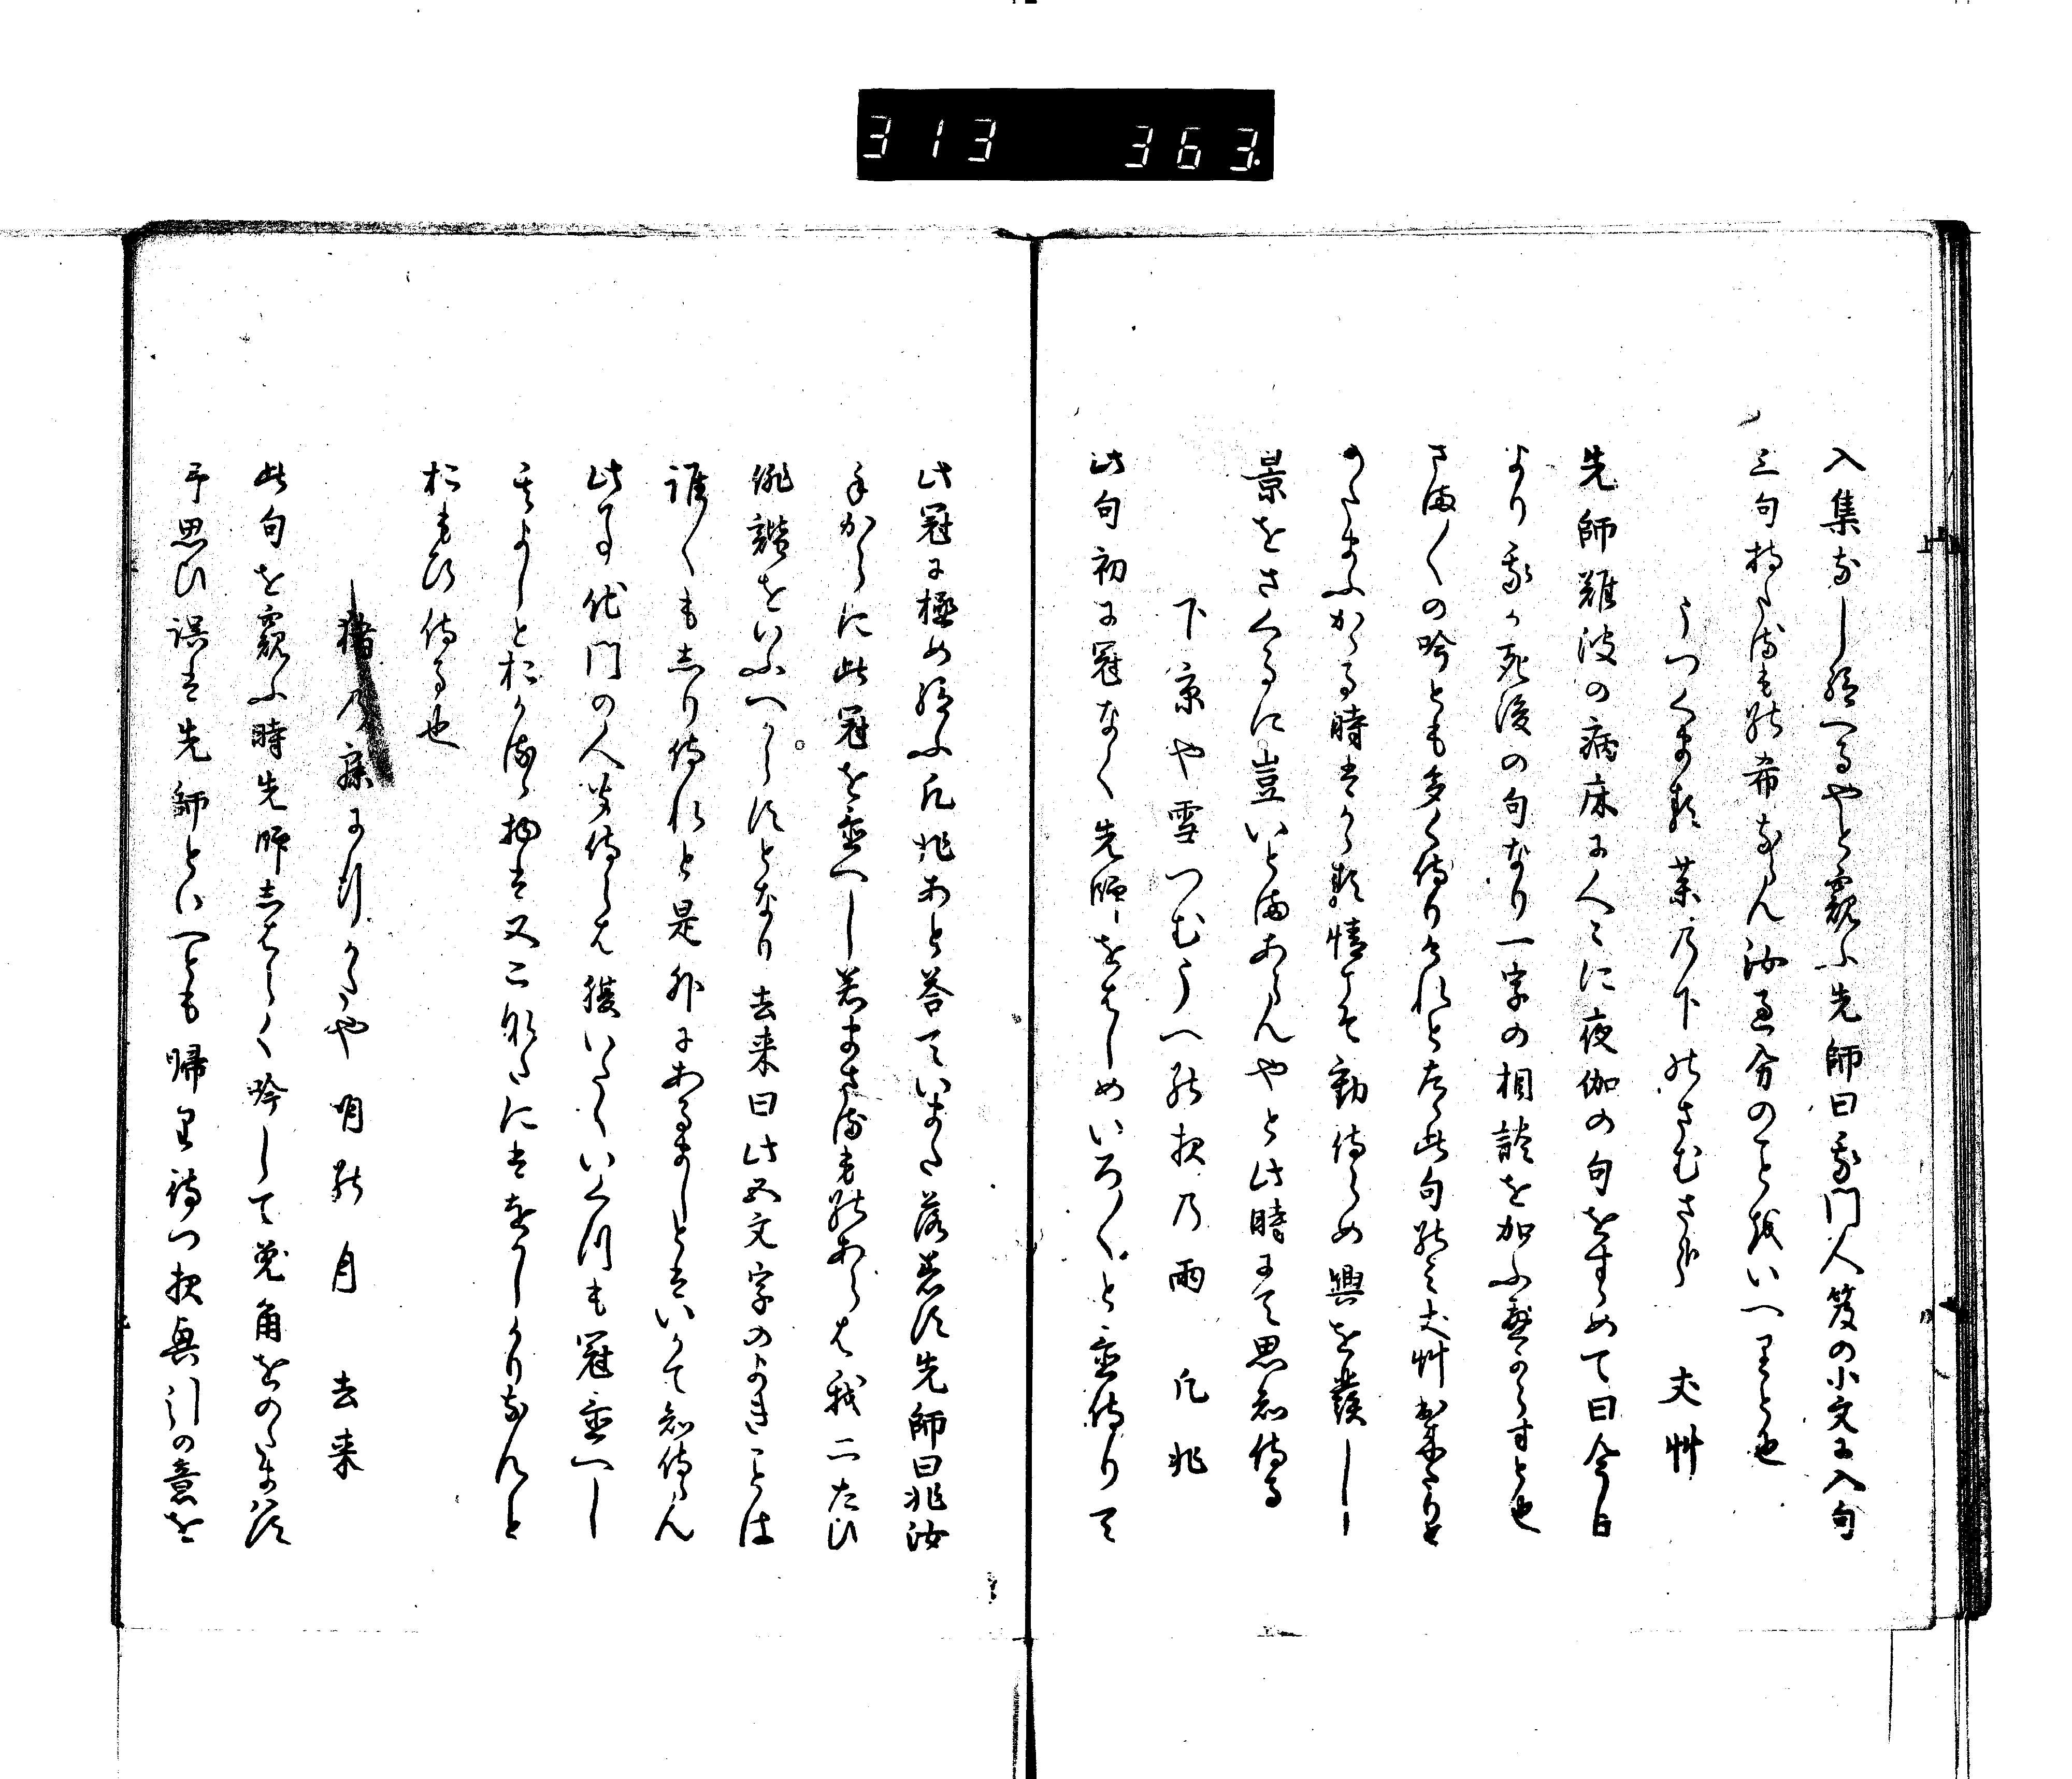 313 363.
入集なし給へるやと窺ふ先師曰我門人笈の小文に入句
三句持たるもの希ならん汝過分のことをいへりと也
うつくまる薬の下のさむさ哉 丈艸
先師難波の病床に人々に夜伽の句をすゝめて曰今日
より我か死後の句なり一字の相談を加ふへからすと也
さま〳〵の吟とも多く侍りけれとたゝ此句のミ丈艸出来たりと
のたまふかゝる時はかゝる情こそ動侍らめ興を発し
景をさくるに豈いとまあらんやと此時にこそ思ひ知侍る
下京や雪つむうへの夜の雨 凡兆
此句初に冠なく先師をはしめいろ〳〵と置侍りて
此冠に極め給ふ凡兆あと答ていまた落着す先師曰兆汝
手からに此冠を置へし若まさるものあらは我二たひ
俳諧をいふへからすとなり去来曰此五文字のよきことは
誰〳〵もしり侍れと是外にあるましとはいかて知侍らん
此事他門の人聞侍らは腹いたくいくつも冠置へし
其よしとおかるゝ物は又こなたにはをかしかりなんと
おもひ侍る也
猪の寐に行かたや明の月 去来
此句を窺ふ時先師しはらく吟して兎角をのたまはす
予思ひ誤は先師といへとも帰り待つ夜興引の意を